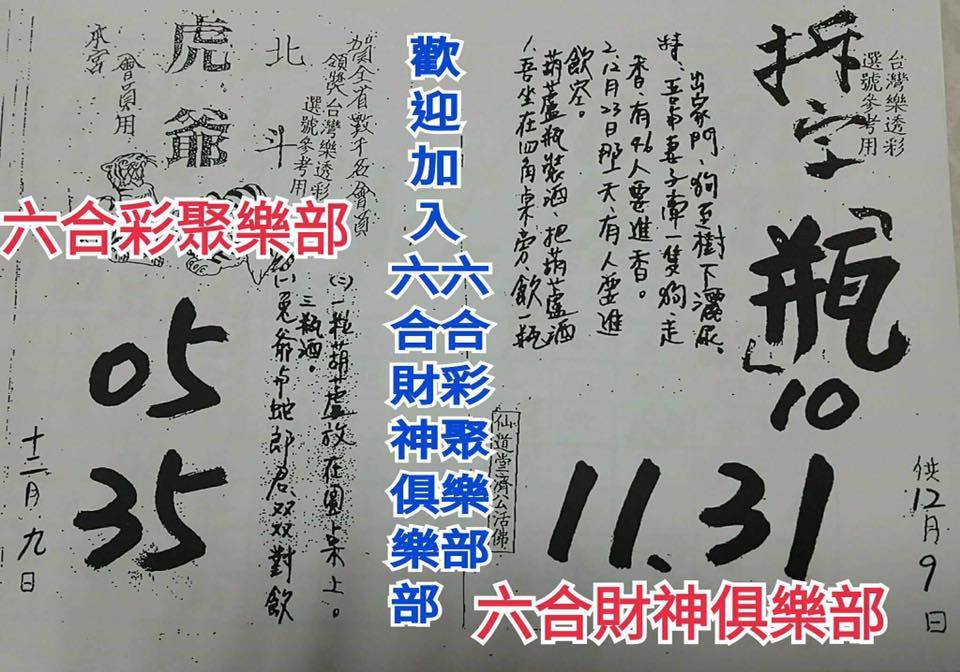 拆字
「瓶」
10
11.31
台灣樂透彩
選號參考用
供12月9日
出家門、狗至樹下灑尿。
特:吾常妻子牽一隻狗走
香、有46人要進香。
2.12月23日那天有人要進
飲空。
葫蘆瓶裝酒、把葫蘆酒
1.吾坐在四角桌旁、飲一瓶
仙道堂濟公活佛
歡迎加入六合彩聚樂部
六合財神俱樂部
六合財神俱樂部
賀全省數千名會員
領獎台灣樂透彩
選號參考用
北斗
虎爺
會員用
本宮
六合彩聚樂部
(二)一瓶葫蘆放在圓桌上。
三瓶酒。
兔爺與蛇郎君、双双對飲
05
35
十二月九日